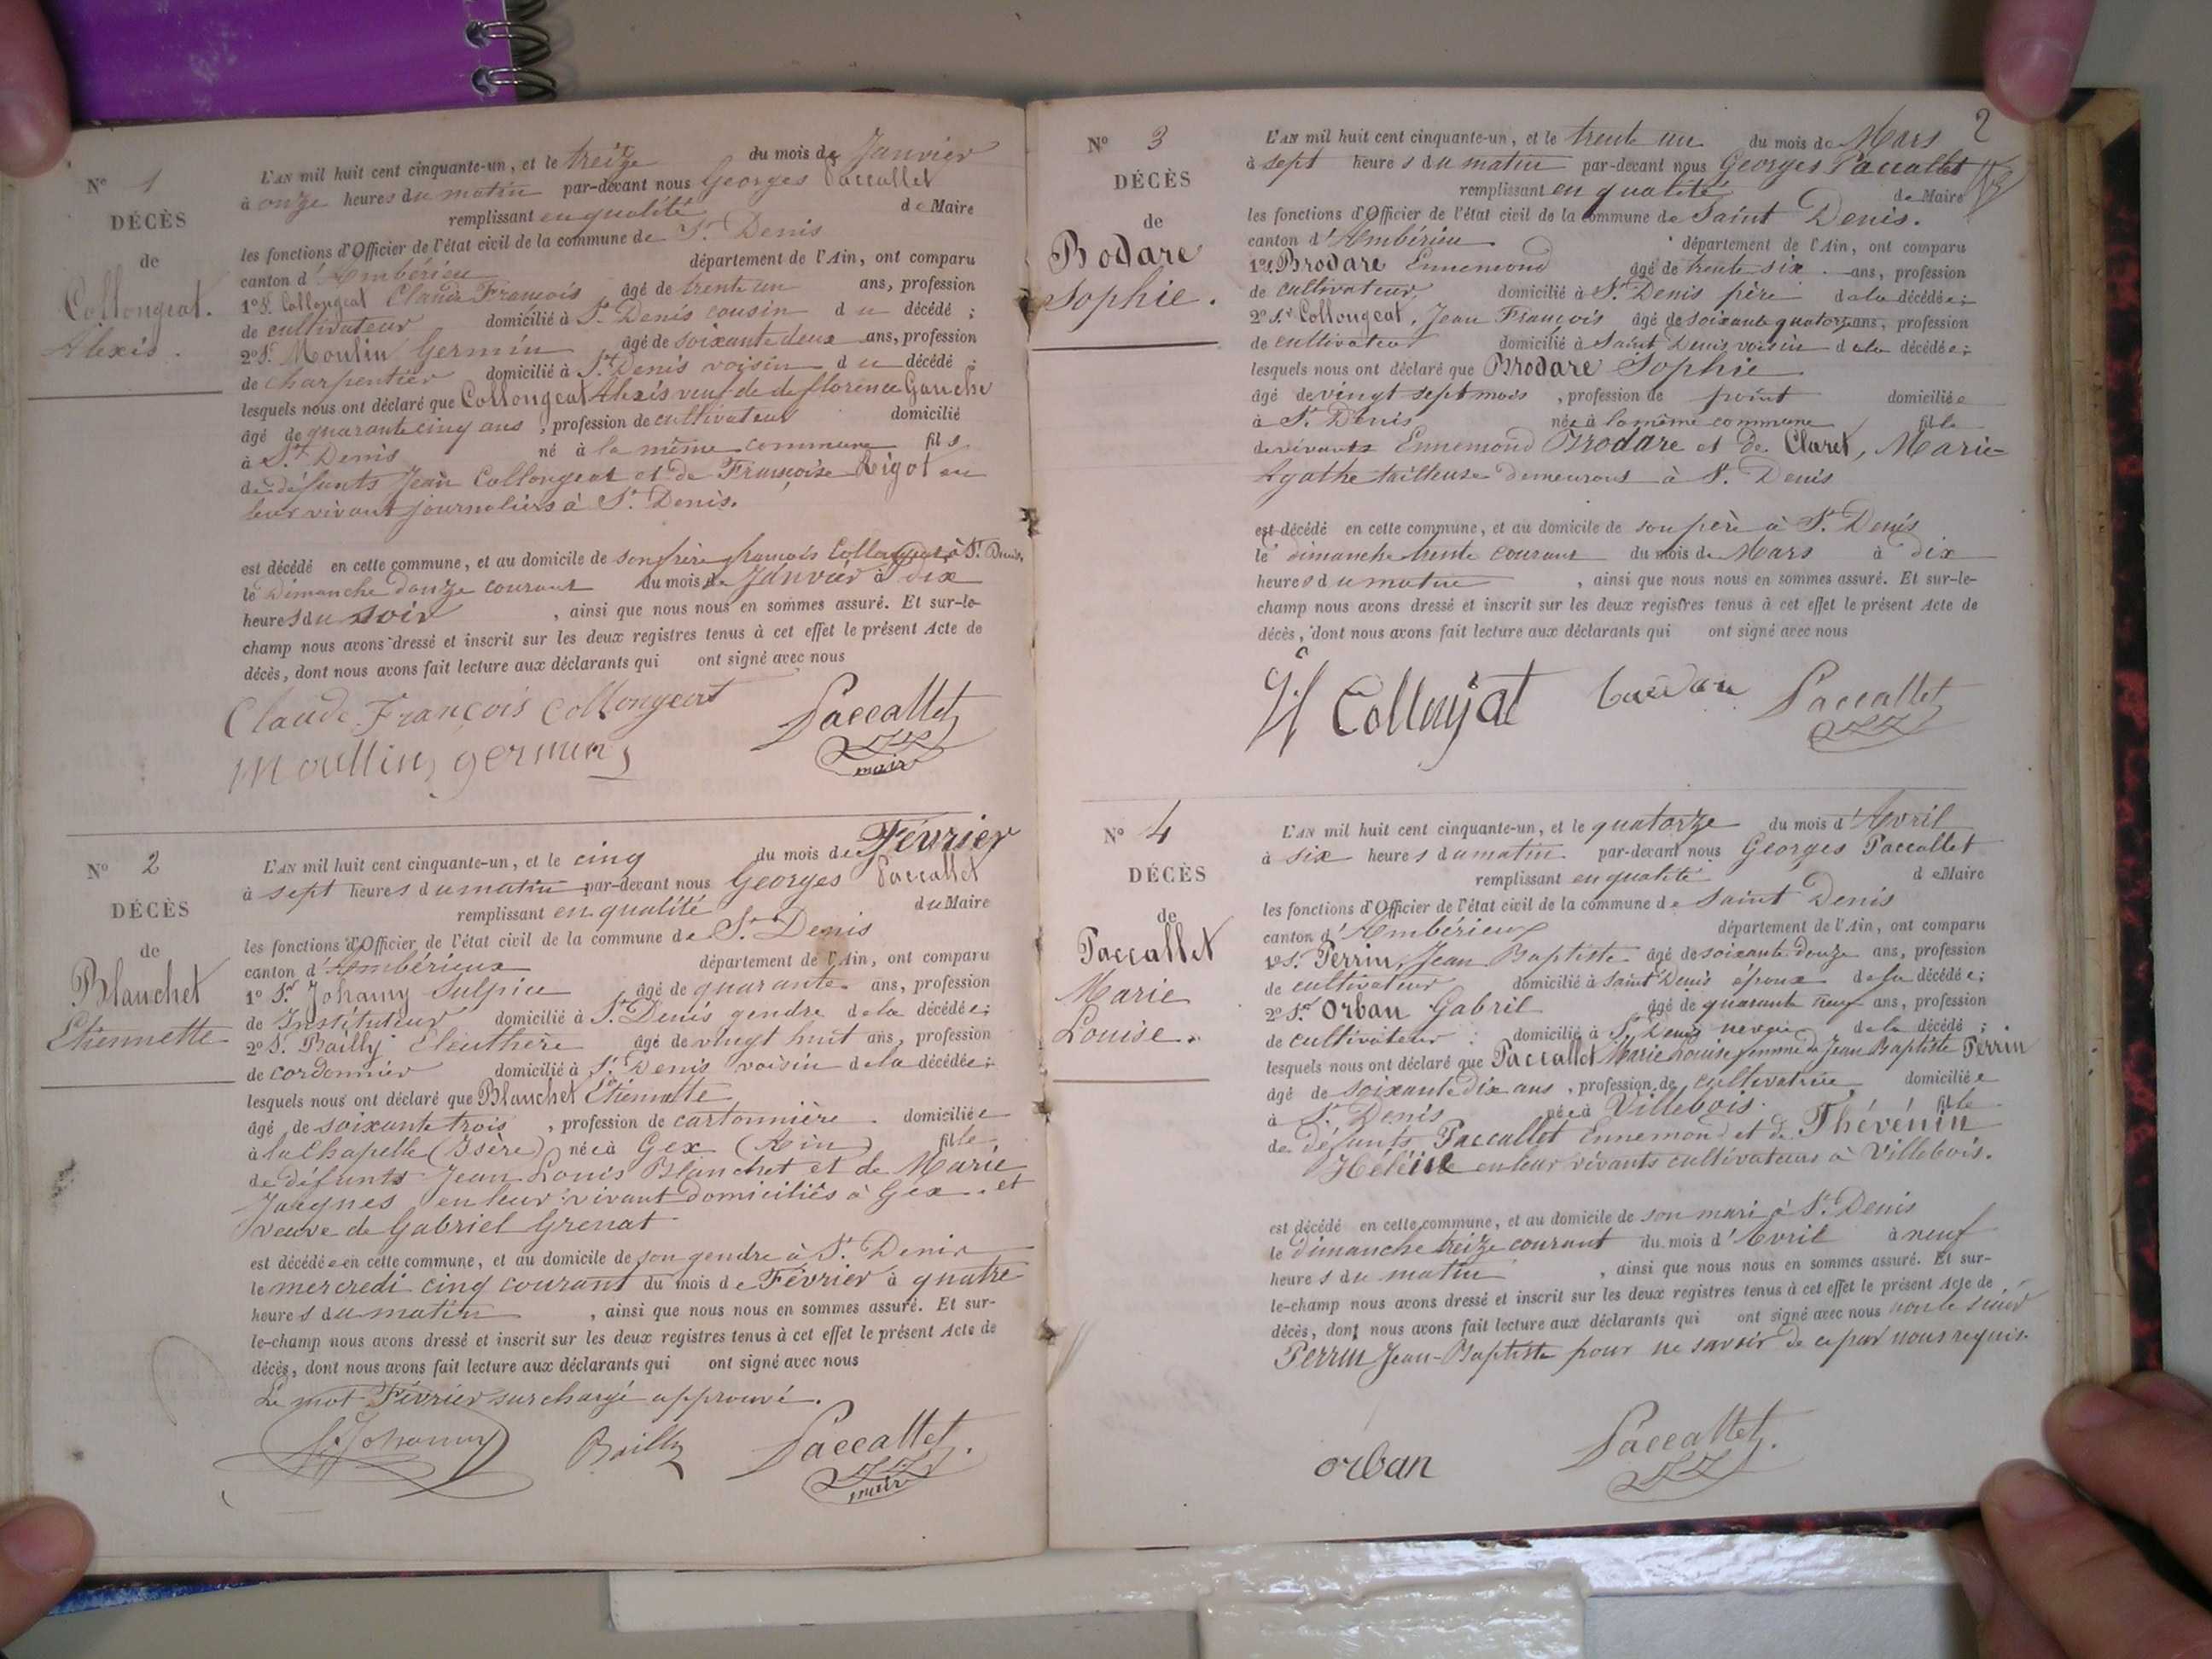 N° 1
DÉCÈS
de
Collongeat.
Alexis.
L'AN mil huit cent cinquante-un, et le treize du mois de Janvier
à onze heures du matin par-devant nous Georges Paccallet
remplissant en qualité de Maire
les fonctions d'Officier de l'état civil de la commune de St. Denis
canton d'Ambérieu département de l'Ain, ont comparu
1° S. Collongeat Claude François âgé de trente un ans, profession
de cultivateur domicilié à St. Denis cousin du décédé ;
2° Sr. Moulin Germin âgé de soixante deux ans, profession
de charpentier domicilié à St. Denis voisin du décédé ;
lesquels nous ont déclaré que Collongeat Alexis veuf de de florence Gauche
âgé de quarante cinq ans, profession de cultivateur domicilié
à St. Denis né à la même commune fils
de défunts Jean Collongeat et de Françoise Rigot en
leur vivant journaliers à St. Denis.
est décédé en cette commune, et au domicile de son frère françois Collongeat à St. Denis,
le Dimanche douze courant du mois de Janvier à dix
heures du soir, ainsi que nous nous en sommes assuré. Et sur-le-
champ nous avons dressé et inscrit sur les deux registres tenus à cet effet le présent Acte de
décès, dont nous avons fait lecture aux déclarants qui ont signé avec nous
Claude François Collongeat Paccallet
moullin germin maire
N° 2
DÉCÈS
de
Blanchet
Etiennette
L'AN mil huit cent cinquante-un, et le cinq du mois de Février
à sept heures du matin par-devant nous Georges Paccallet
remplissant en qualité du Maire
les fonctions d'Officier de l'état civil de la commune de St. Denis
canton d'Ambérieux département de l'Ain, ont comparu
1° Sr. Johamy Sulpice âgé de quarante ans, profession
de Instituteur domicilié à St. Denis gendre de la décédée ;
2° S. Bailly Eleuthère âgé de vingt huit ans, profession
de cordonnier domicilié à St. Denis voisin de la décédée ;
lesquels nous ont déclaré que Blanchet Etiennette
âgé de soixante trois, profession de cartonnière domiciliée
à la Chapelle (Isère) née à Gex (Ain) fille
de défunts Jean Louis Blanchet et de Marie
Jacques en leur vivant domiciliés à Gex. et
veuve de Gabriel Grenat
est décédée en cette commune, et au domicile de son gendre à St. Denis
le mercredi cinq courant du mois de Février à quatre
heures du matin, ainsi que nous nous en sommes assuré. Et sur-
le-champ nous avons dressé et inscrit sur les deux registres tenus à cet effet le présent Acte de
décès, dont nous avons fait lecture aux déclarants qui ont signé avec nous
Le mot Février surchargé approuvé.
Johamy Bailly Paccallet
maire
2
N° 3
DÉCÈS
de
Bodare
Sophie.
L'AN mil huit cent cinquante-un, et le trente un du mois de Mars
à sept heures du matin par-devant nous Georges Paccallet
remplissant en qualité de Maire
les fonctions d'Officier de l'état civil de la commune de Saint Denis.
canton d'Ambérieu département de l'Ain, ont comparu
1° S. Brodare Ennemond âgé de trente six ans, profession
de cultivateur, domicilié à St. Denis père de la décédée ;
2° Sr. Collongeat, Jean François âgé de soixante quatorze ans, profession
de cultivateur domicilié à Saint Denis voisin de la décédée ;
lesquels nous ont déclaré que Brodare Sophie
âgé de vingt sept mois, profession de point domiciliée
à St. Denis née à la même commune fille
de vivants Ennemond Brodare et de Claret, Marie-
Agathe tailleuse demeurons à St. Denis
est décédé en cette commune, et au domicile de son père à St. Denis
le dimanche trente courant du mois de Mars à dix
heures du matin, ainsi que nous nous en sommes assuré. Et sur-le-
champ nous avons dressé et inscrit sur les deux registres tenus à cet effet le présent Acte de
décès, dont nous avons fait lecture aux déclarants qui ont signé avec nous
Collonjat Paccallet
N° 4
DÉCÈS
de
Paccallet
Marie
Louise.
L'AN mil huit cent cinquante-un, et le quatorze du mois d'Avril
à six heures du matin par-devant nous Georges Paccallet
remplissant en qualité de Maire
les fonctions d'Officier de l'état civil de la commune de Saint Denis
canton d'Ambérieux département de l'Ain, ont comparu
1° S. Perrin, Jean Baptiste âgé de soixante douze ans, profession
de cultivateur domicilié à Saint Denis époux de la décédée ;
2° Sr. Orban Gabril âgé de quarante neuf ans, profession
de cultivateur domicilié à St. Denis neveu de la décédé ;
lesquels nous ont déclaré que Paccallet Marie Louise femme de Jean Baptiste Perrin
âgé de soixante dix ans, profession de cultivatrice domiciliée
à St. Denis née à Villebois. fille
de défunts Paccallet Ennemond et de Thévénin
Héléine en leur vivants cultivateurs à Villebois.
est décédé en cette commune, et au domicile de son mari à St. Denis
le dimanche treize courant du mois d'Avril à neuf
heures du matin, ainsi que nous nous en sommes assuré. Et sur-
le-champ nous avons dressé et inscrit sur les deux registres tenus à cet effet le présent Acte de
décès, dont nous avons fait lecture aux déclarants qui ont signé avec nous non le sieur
Perrin Jean-Baptiste pour ne savoir de ce par nous requis.
orban Paccallet